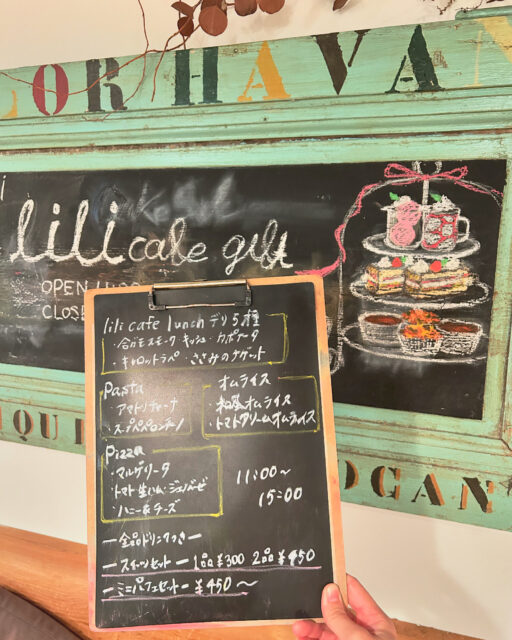 LOR HAVAN
lili cafe gift
OPEN
CLOSE
lili cafe lunch デリ5種
・合ガモスモーク キッシュ カポナータ
・キャロットラペ ・ささみのナゲット
Pasta
・アマトリチャーナ
オムライス
・和風オムライス
・トマトクリームオムライス
Pizza
・マルゲリータ
・トマト生ハム・ジェノベーゼ
・ハニー&チーズ
11:00〜
15:00
ー全品ドリンクつきー
ースイーツセットー 1品¥300 2品¥450
ーミニパフェセットー¥450〜
IQUE
OGAN